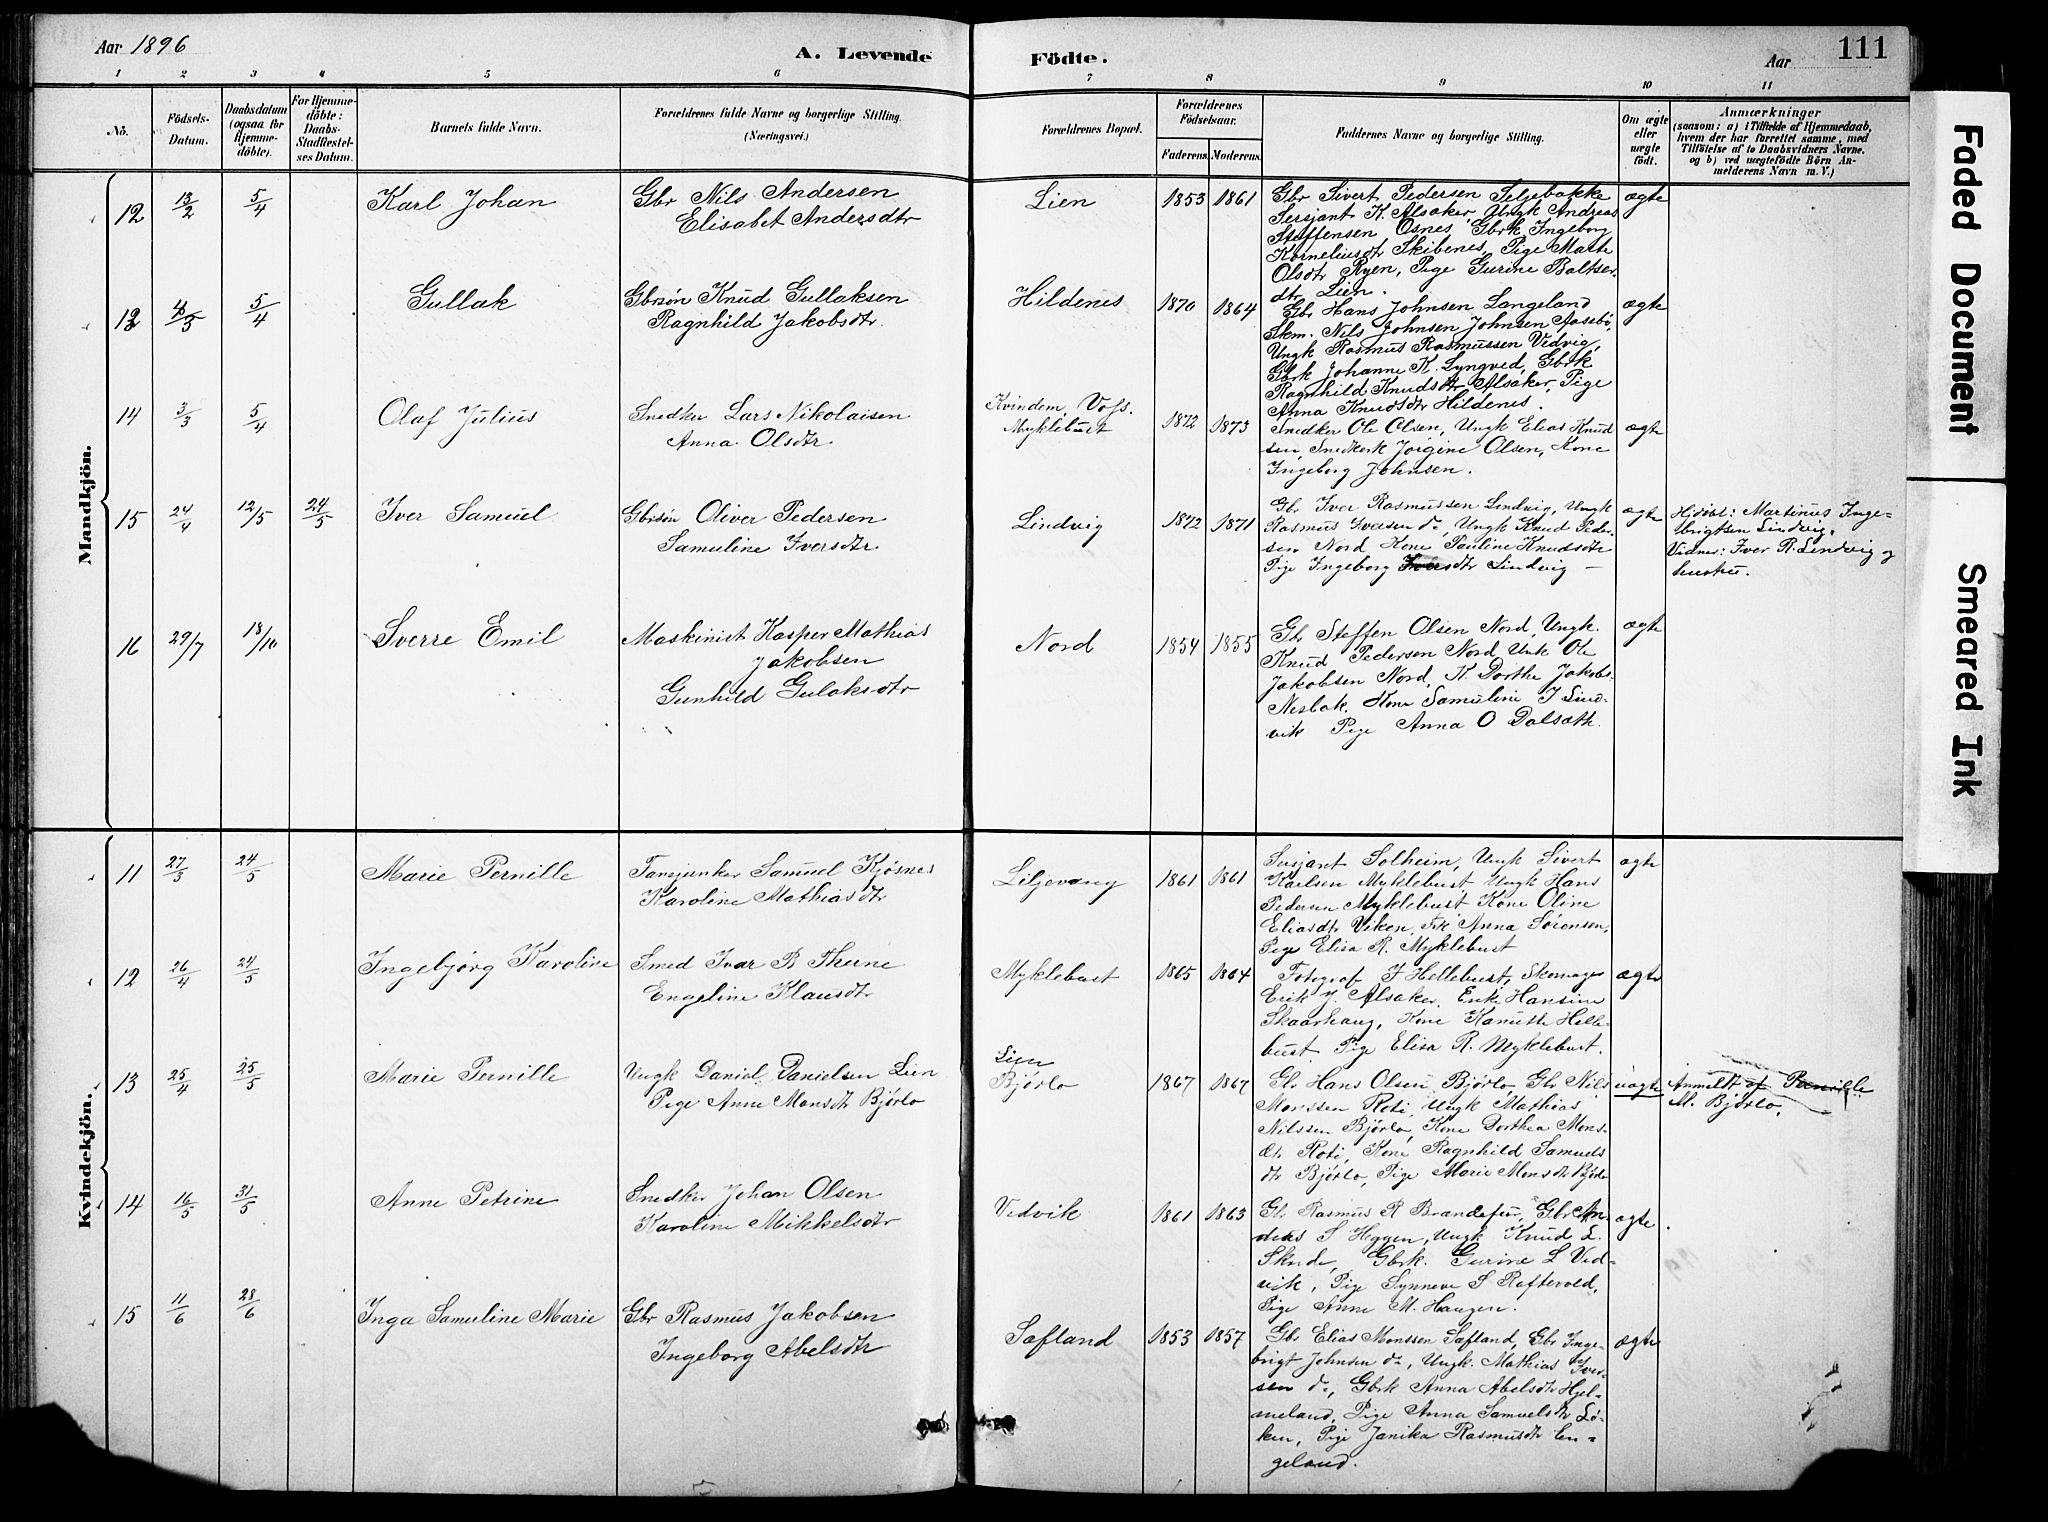 Aar 1896
A. Levende
Födte.
Aar
111
1 2 3 4 5 6 7 8 9 10 11
No.
Födsels-
Datum.
Daabsdatum
(ogsaa for
Hjemme-
döbte).
For Hjemme-
döbte:
Daabs-
Stadfæstel-
ses Datum.
Barnets fulde Navn.
Forældrenes fulde Navne og borgerlige Stilling.
(Næringsvei.)
Forældrenes Bopæl.
Forældrenes
Födselsaar.
Faderens. Moderens.
Faddernes Navne og borgerlige Stilling.
Om ægte
eller
uægte
födt.
Anmærkninger
(saasom: a) i Tilfælde af Hjemmedaab,
hvem der har forrettet samme, med
Tilföielse af to Daabsvidners Navne.
og b) ved uægtefödte Börn An-
melderens Navn m. V.)
Mandkjön.
12 13/2 5/4 Karl Johan
Gbr Nils Andersen
Elisabet Andersdtr
Lien 1853 1861
Gbr Sivert Pedersen Seljebakke
Sersjant K. Alsaker, Ungk Andreas
Steffensen Osnes, Gbrk Ingeborg
Korneliusdtr Skibenes, Pige Marte
Olsdtr Ryen, Pige Gurine Baltser-
dtr Lien.
ægte
13 5/4 Gullak
Gbrsøn Knud Gullaksen
Ragnhild Jakobsdtr.
Hildenes 1870 1864
Gbr Hans Johnsen Langeland
Skm. Nils Johnsen Johnsen Aasebø,
Ungk Rasmus Rasmussen Vedvig,
Gbrk Johanne K. Lyngved, Gbrk
Ragnhild Knudsdtr Alsaker, Pige
Anna Knudsdtr Hildenes.
ægte
14 3/3 5/4 Olaf Julius
Snedker Lars Nikolaisen
Anna Olsdtr
Kvindem, Voss.
Myklebust
1872 1873
Snedker Ole Olsen, Ungk Elias Knud
sen, Snedkerk Jørgine Olsen, Kone
Ingeborg Johnsen.
ægte
15 24/4 12/5 24/5 Iver Samuel
Gbrsøn Oliver Pedersen
Samuline Iversdtr
Lindvig 1872 1871
Gbr Iver Rasmussen Lindvig, Ungk
Rasmus Iversen do, Ungk Knud Peder-
sen Nord Kone Pauline Knudsdtr
Pige Ingeborg Iversdtr Lindvig –
ægte
Hjdøbt: Martinus Inge-
brigtsen Lindvig.
Vidner: Iver R. Lindvig og
hustru.
16 29/7 18/10 Sverre Emil
Maskinist Kasper Mathias
Jakobsen
Gunhild Gulaksdtr
Nord 1854 1855
Gbr Steffen Olsen Nord, Ungk.
Knud Pedersen Nord Ungk Ole
Jakobsen Nord, K. Dorthe Jakobs-
Nesbak. Kone Samuline I Lind-
vik Pige Anna O Dalsæth.
ægte
Kvindekjön.
11 27/3 24/5 Marie Pernille
Fanejunker Samuel Kjøsnes
Karoline Mathiasdtr
Liljevang 1861 1861
Sersjant Solheim, Ungk Sivert
Karlsen Myklebust, Ungk Hans
Pedersen Myklebust Kone Oline
Eliasdtr Viken, Frk Anna Sørensen,
Pige Elisa R. Myklebust
ægte
12 26/4 24/5 Ingebjørg Karoline
Smed Ivar R Thune
Engeline Klausdtr
Myklebust 1865 1864
Fotograf J Hellebust, Skomager
Erik J. Alsaker, Enke Hansine
Skaarhaug, Kone Kanutte Helle-
bust. Pige Elisa R. Myklebust.
ægte
13 25/4 25/5 Marie Pernille
Ungk Daniel Danielsen Lien
Pige Anne Monsdtr Bjørlo
Lien
Bjørlo
1867 1867
Gbr Hans Olsen Bjørlo, Gbr Nils
Monssen Roti, Ungk Mathias
Nilssen Bjørlo, Kone Dorthea Mons-
dtr Roti, Kone Ragnhild Samuels
dtr Bjørlo, Pige Marie Monsdtr Bjørlo
uægte
Anmeldt af Pernille
M. Bjørlo.
14 16/5 31/5 Anne Petrine
Snedker Johan Olsen
Karoline Mikkelsdtr
Vedvik 1861 1863
Gbr Rasmus R Brandefur, Gbr An-
dreas S Heggen, Ungk Knud L.
Skude, Gbrk. Gurine L Ved-
vik, Pige Synneve S Raftevold,
Pige Anne M. Haugen.
ægte.
15 11/6 28/6 Inga Samuline Marie
Gbr Rasmus Jakobsen
Ingeborg Abelsdtr
Safland 1853 1857
Gbr Elias Monssen Safland, Gbr Inge-
brigt Johnsen do, Ungk. Mathias Iver-
sen do, Gbrk Anna Abelsdtr Hjel-
meland, Pige Anna Samuelsdtr Lø-
ken, Pige Janika Rasmusdtr En-
geland.
ægte
Faded Document
Smeared Ink